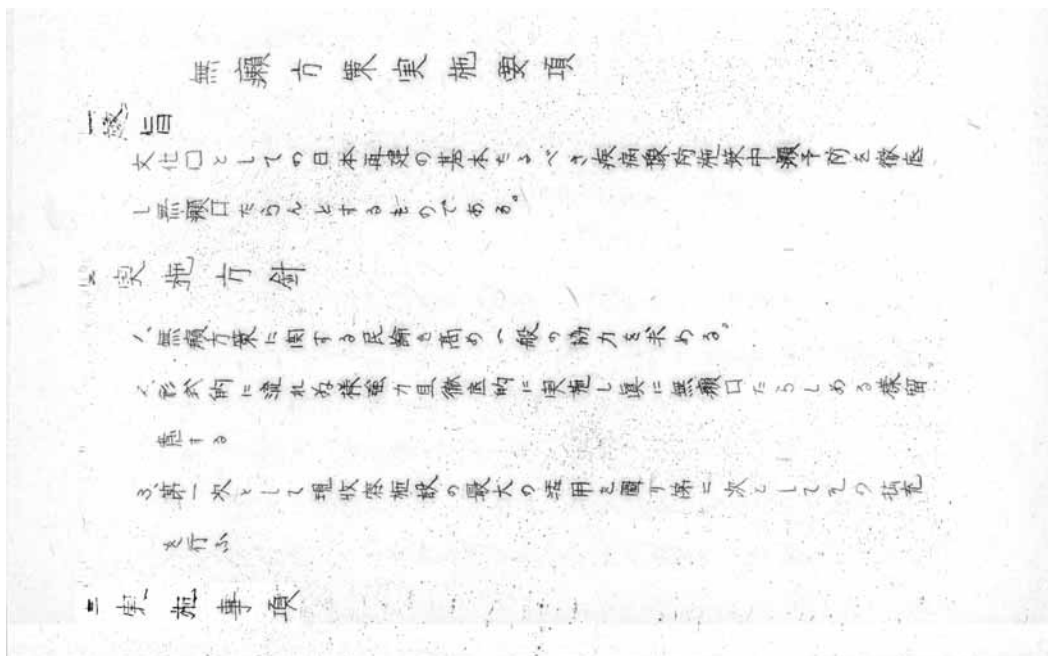 無癩方策実施要項
一、趣旨
文化口としての日本再建の基本たるべき疾病予防施策中癩予防を徹底
し無癩口たらんとするものである。
二、実施方針
1、無癩方策に関する民論を高め一般の協力を求める。
2、形式的に流れぬ様強力且徹底的に実施し真に無癩口たらしめる様留
意する
3、第一次として現収容施設の最大の活用を図り第二次としてその拡充
を行ふ
三、実施事項